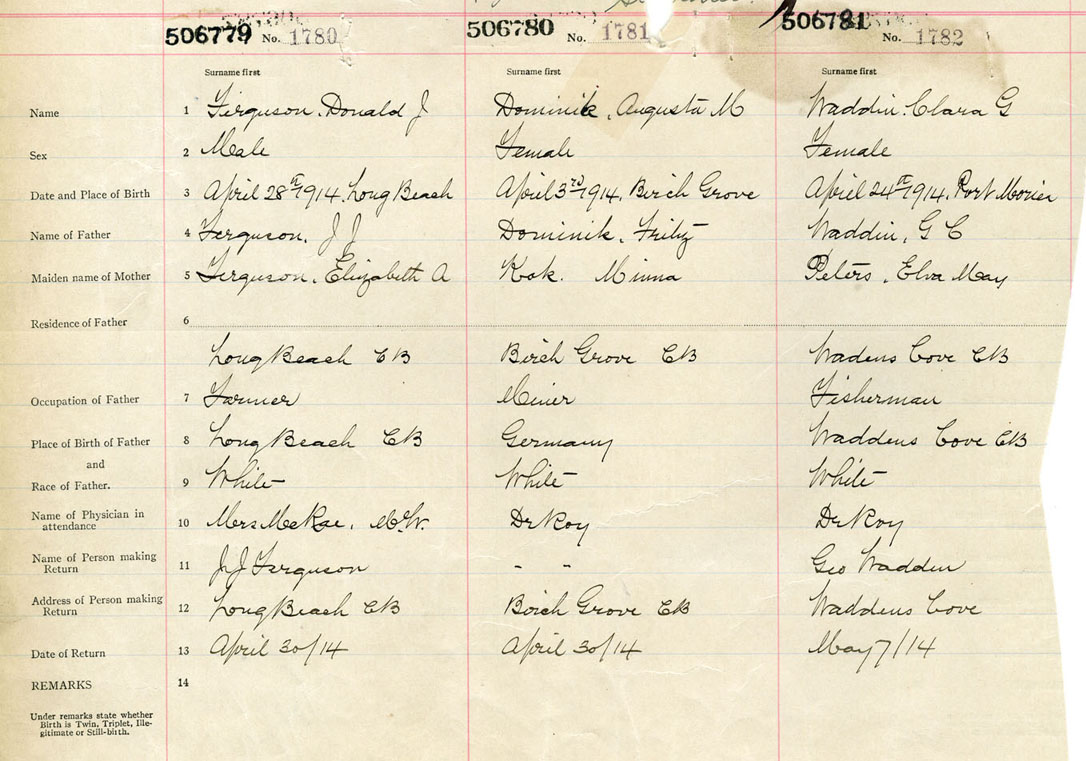 506779 No. 1780 506780 No. 1781 506781 No. 1782
Surname first Surname first Surname first
Name 1 Ferguson, Donald J Dominik, Augusta M Waddin, Clara G
Sex 2 Male Female Female
Date and Place of Birth 3 April 28th 1914, Long Beach April 3rd 1914, Birch Grove April 24th 1914, Port Morien
Name of Father 4 Ferguson, J J Dominik, Fritz Waddin, G C
Maiden name of Mother 5 Ferguson, Elizabeth A Kok. Minna Peters, Elva May
Residence of Father 6
Long Beach CB Birch Grove CB Wadens Cove CB
Occupation of Father 7 Farmer Miner Fisherman
Place of Birth of Father 8 Long Beach CB Germany Waddens Cove CB
and
Race of Father. 9 White White White
Name of Physician in
attendance 10 Mrs McRae, M.W. Dr Roy Dr Roy
Name of Person making
Return 11 J J Ferguson " " Geo Wadden
Address of Person making
Return 12 Long Beach CB Birch Grove CB Waddens Cove
Date of Return 13 April 30/14 April 30/14 May 7/14
REMARKS 14
Under remarks state whether
Birth is Twin, Triplet, Ille-
gitimate or Still-birth.